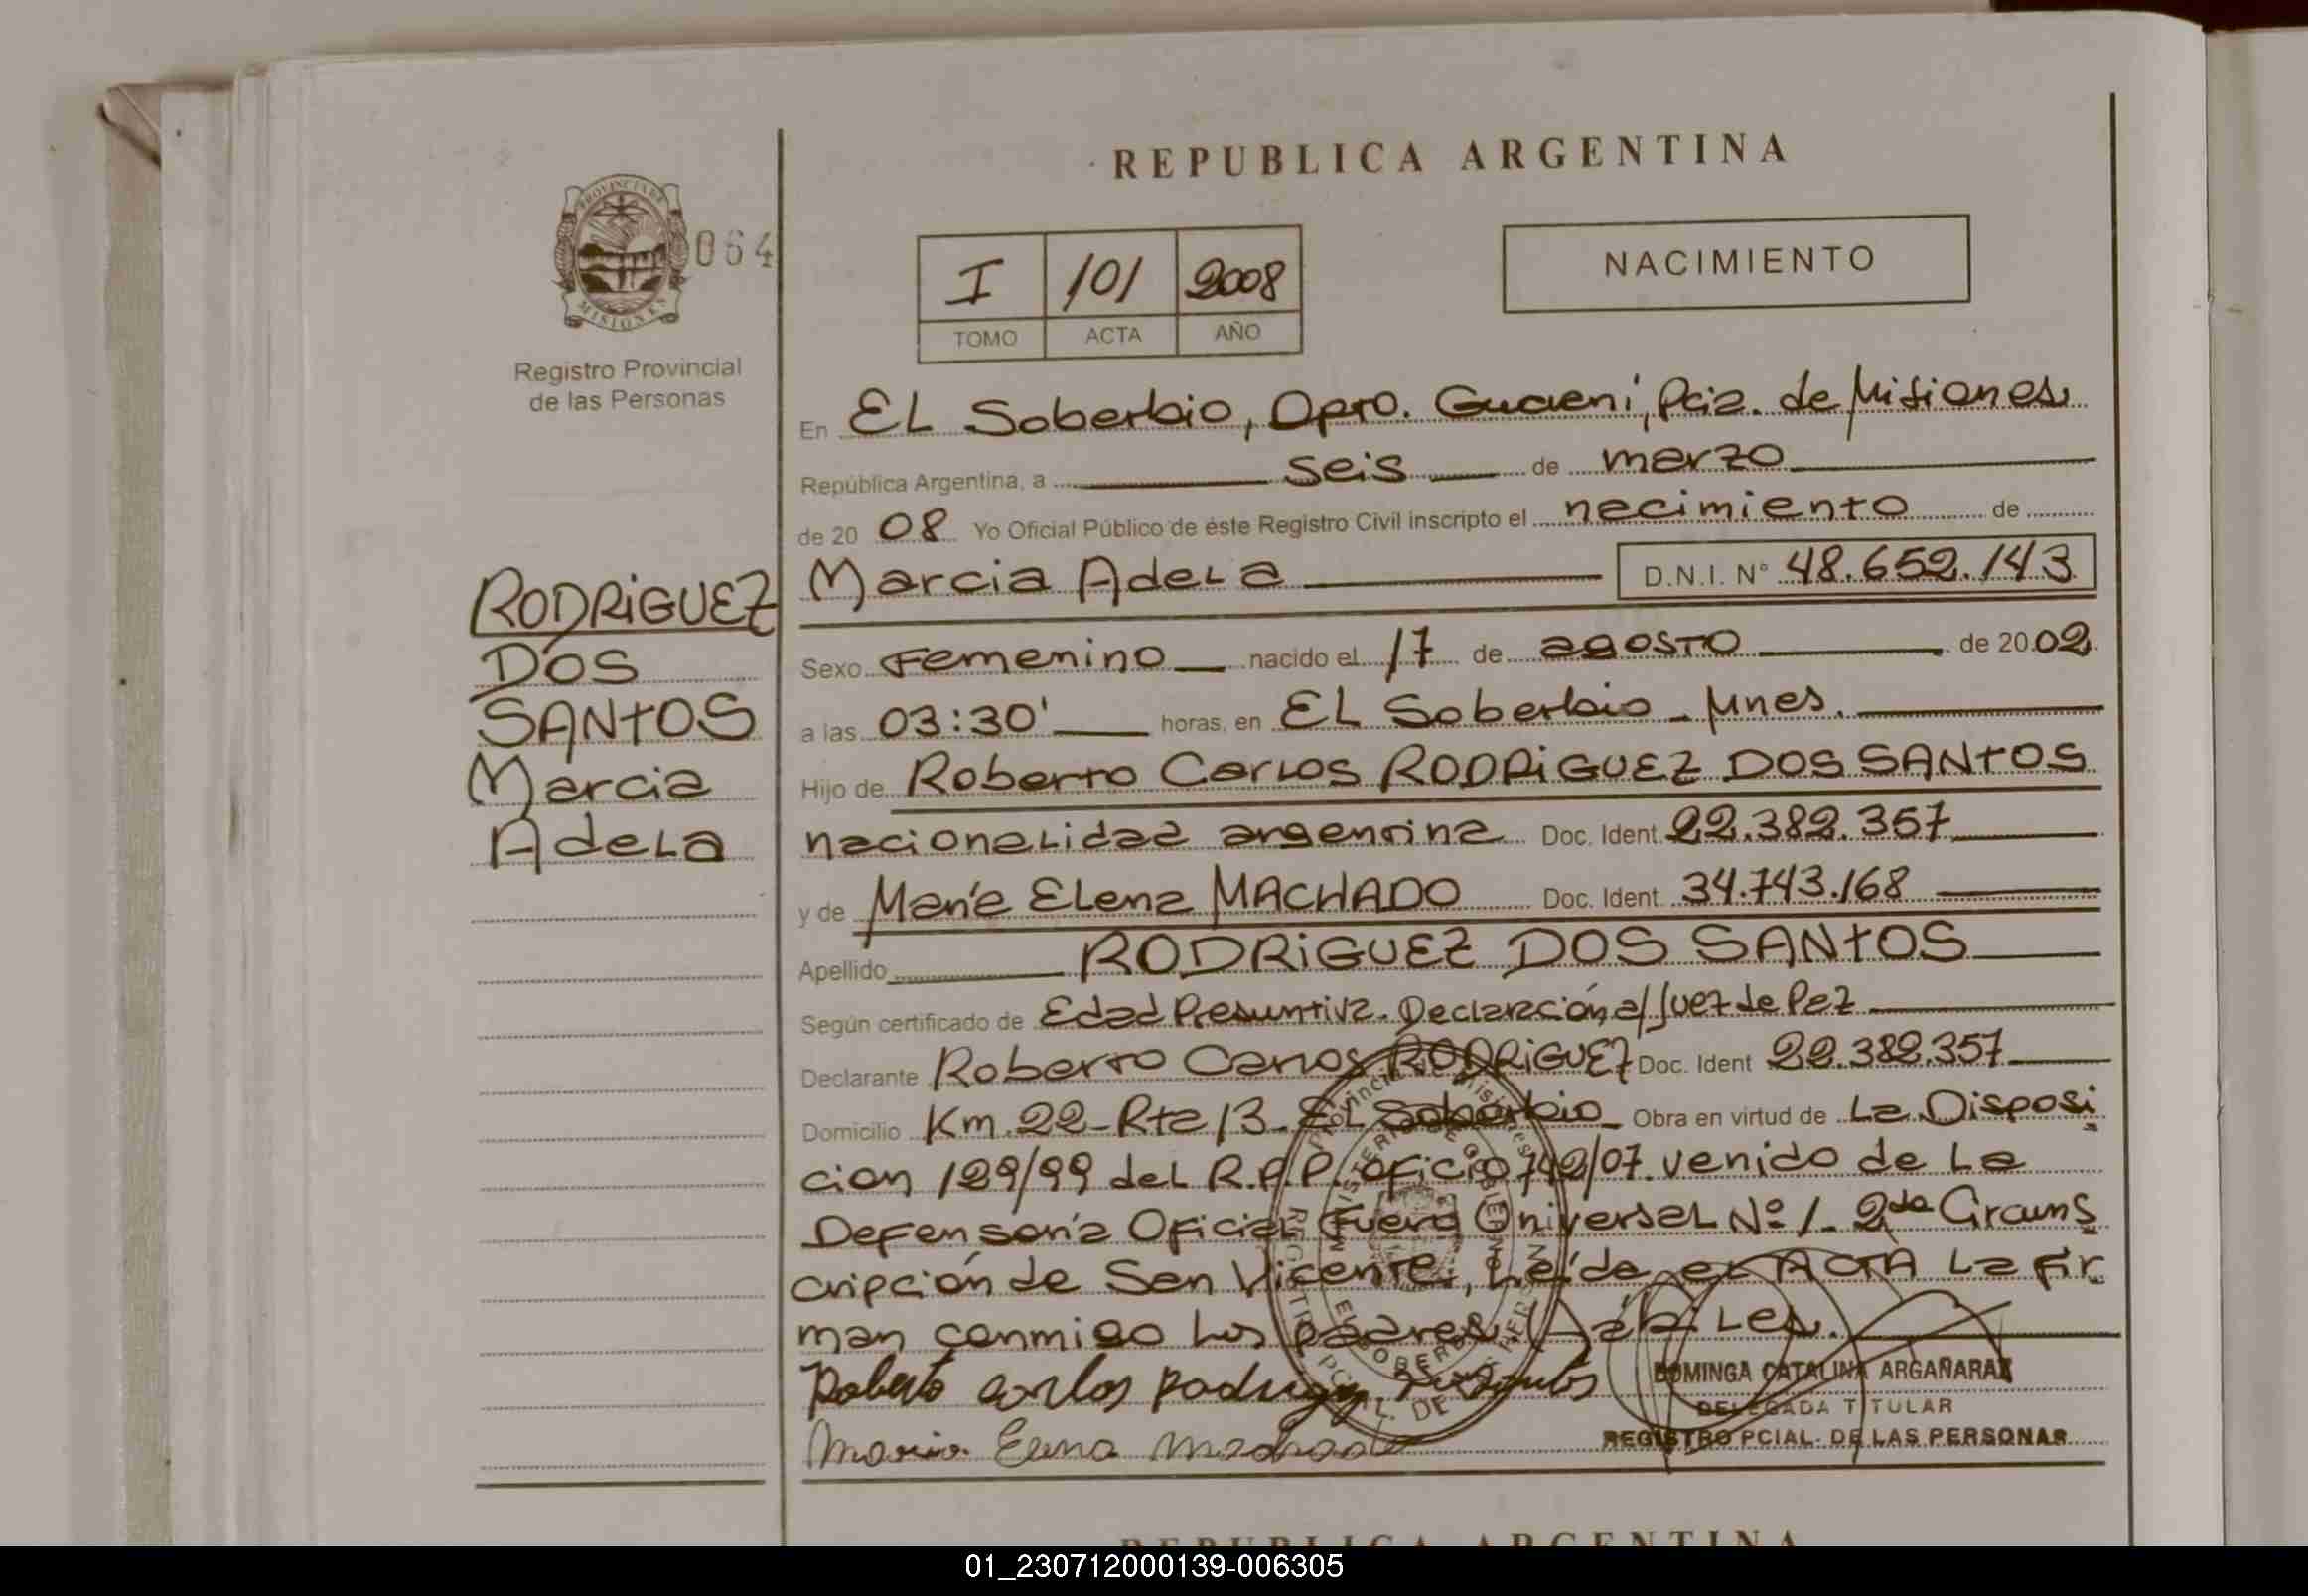 REPUBLICA ARGENTINA
PROVINCIA DE
MISIONES
064
Registro Provincial
de las Personas
I 101 2008
TOMO ACTA AÑO
NACIMIENTO
En EL Soberbio, Dpto. Guaraní, Pcia. de Misiones
República Argentina, a seis de marzo
de 20 08 Yo Oficial Público de éste Registro Civil inscripto el nacimiento de
Marcia Adela D.N.I. N° 48.652.143
RODRIGUEZ
DOS
SANTOS
Marcia
Adela
Sexo Femenino nacido el 17 de agosto de 2002
a las 03:30' horas, en EL Soberbio - Mnes.
Hijo de Roberto Carlos RODRIGUEZ DOS SANTOS
nacionalidad argentina Doc. Ident. 22.382.357
y de María Elena MACHADO Doc. Ident. 34.743.168
Apellido RODRIGUEZ DOS SANTOS
Según certificado de Edad Presuntiva. Declaración a/ Juez de Paz
Declarante Roberto Carlos RODRIGUEZ Doc. Ident 22.382.357
Domicilio Km 22 - Rta 13 - EL Soberbio Obra en virtud de La Disposi
cion 129/99 del R.P.P. oficio 742/07 venido de la
Defensoría Oficial Fuero Universal Nº 1 - 2da Circuns
cripción de San Vicente, Leída el ACTA la fir
man conmigo los padres. Hábiles.
Roberto Carlos Rodriguez dos santos
Maria Elena Machado
Provincia de Misiones
MINISTERIO DE GOBIERNO
EL SOBERBIO
REGISTRO PCIAL. DE LAS PERSONAS
DOMINGA CATALINA ARGAÑARAZ
DELEGADA TITULAR
REGISTRO PCIAL. DE LAS PERSONAS
REPUBLICA ARGENTINA
01_230712000139-006305